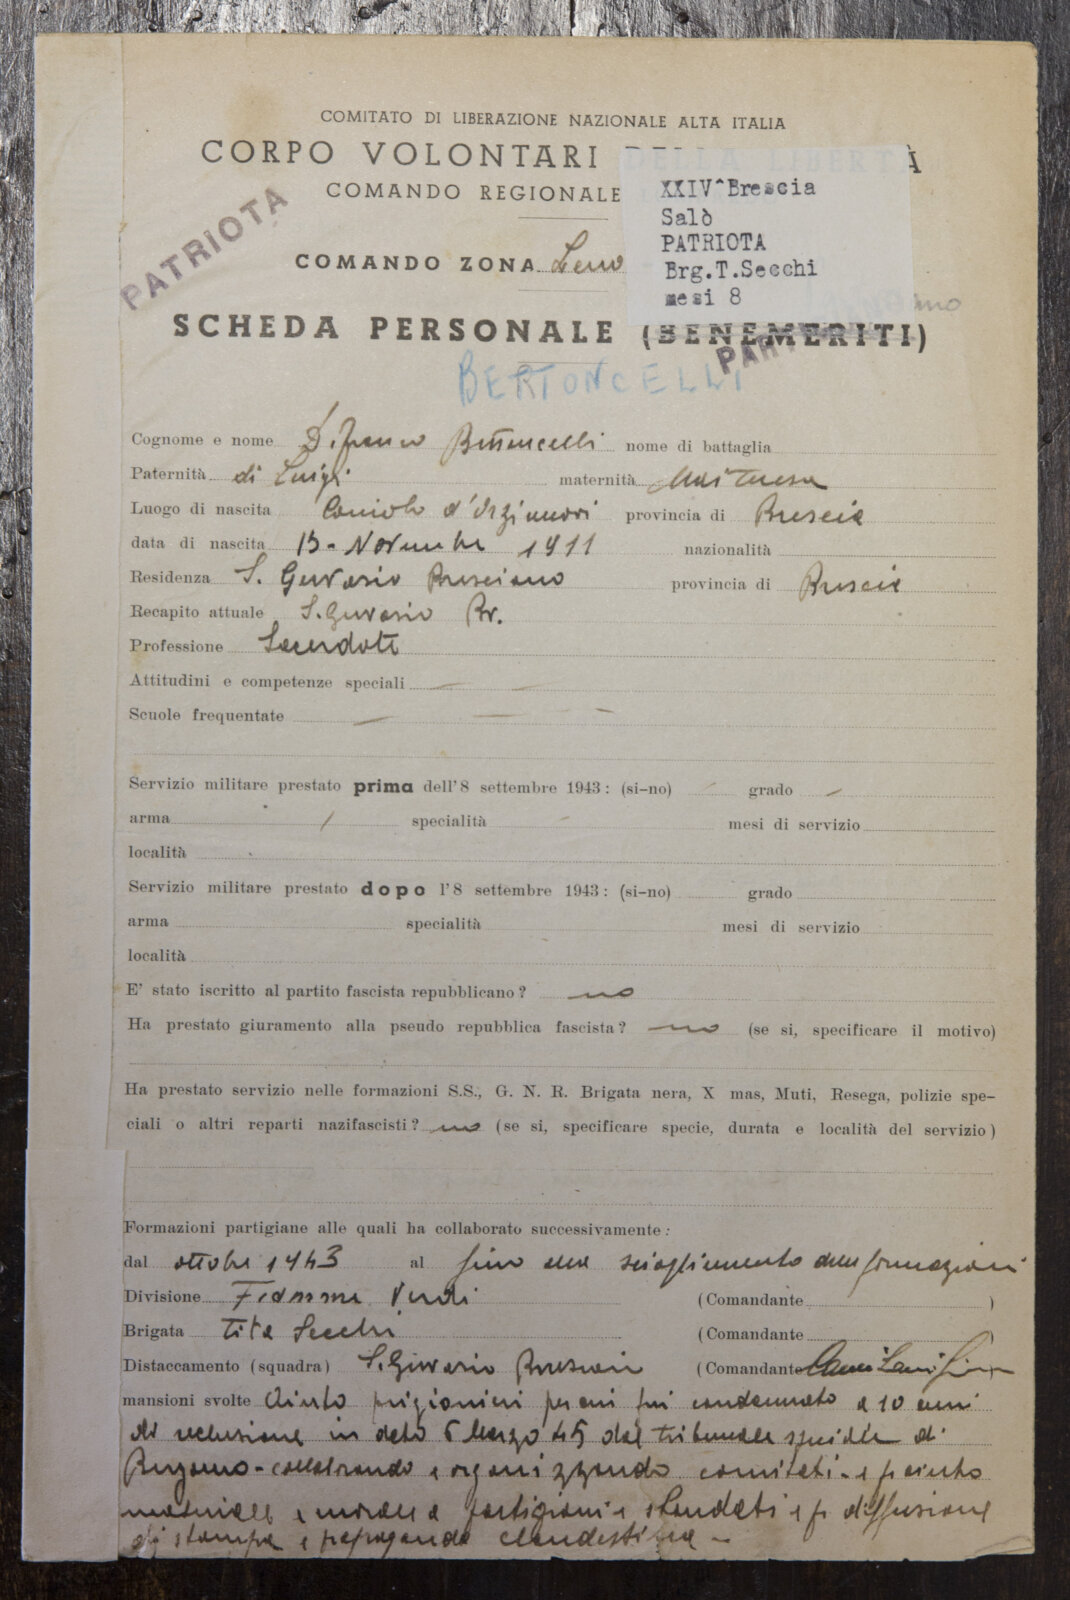 COMITATO DI LIBERAZIONE NAZIONALE ALTA ITALIA
CORPO VOLONTARI DELLA LIBERTÀ
COMANDO REGIONALE
XXIV^Brescia
Salò
PATRIOTA
Brg.T.Secchi
mesi 8
PATRIOTA
COMANDO ZONA Leno
SCHEDA PERSONALE (BENEMERITI)
BERTONCELLI
Cognome e nome D. Franco Bettoncelli nome di battaglia
Paternità di Luigi maternità
Luogo di nascita Coniolo d'Orzinuovi provincia di Brescia
data di nascita 13 - Novembre 1911 nazionalità
Residenza S. Gervasio Bresciano provincia di Brescia
Recapito attuale S. Gervasio Br.
Professione Sacerdote
Attitudini e competenze speciali — —
Scuole frequentate — — —
Servizio militare prestato prima dell'8 settembre 1943: (si-no) grado
arma / specialità mesi di servizio
località
Servizio militare prestato dopo l'8 settembre 1943: (si-no) grado
arma specialità mesi di servizio
località
E' stato iscritto al partito fascista repubblicano? no
Ha prestato giuramento alla pseudo repubblica fascista? no (se si, specificare il motivo)
Ha prestato servizio nelle formazioni S.S., G. N. R. Brigata nera, X mas, Muti, Resega, polizie spe-
ciali o altri reparti nazifascisti? no (se si, specificare specie, durata e località del servizio)
Formazioni partigiane alle quali ha collaborato successivamente:
dal ottobre 1943 al fino allo scioglimento delle formazioni
Divisione Fiamme Verdi (Comandante )
Brigata Tita Secchi (Comandante )
Distaccamento (squadra) S. Gervasio Bresciano (Comandante
mansioni svolte Aiuto prigionieri per cui fui condannato a 10 anni
di reclusione in data 6 Marzo 45 dal tribunale speciale di
Bergamo - collaborando e organizzando comitati - e p aiuto
materiale e morale a partigiani e sbandati e p diffusione
di stampa e propaganda clandestina -